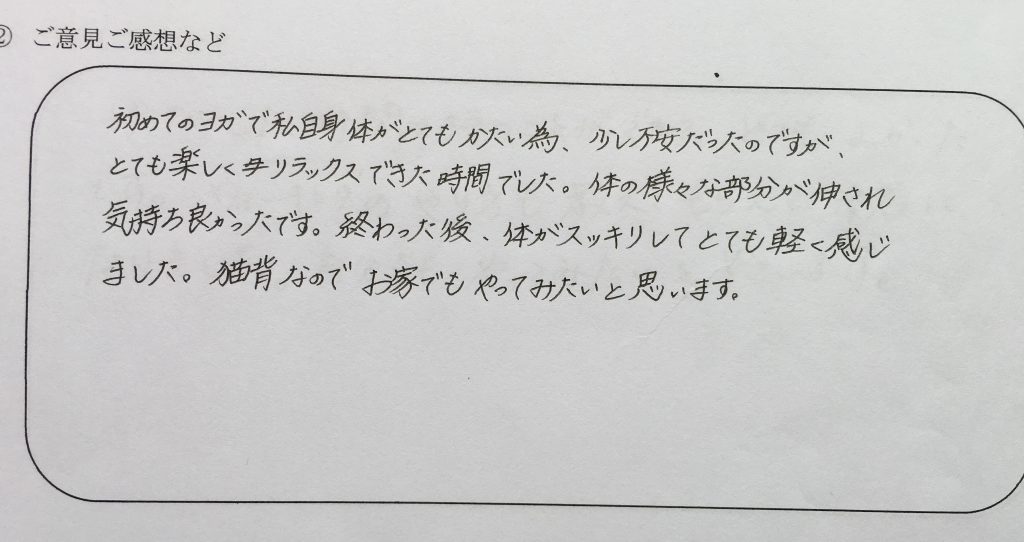 ② ご意見ご感想など
初めてのヨガで私自身体がとてもかたい為、少し不安だったのですが、
とても楽しくリラックスできた時間でした。体の様々な部分が伸され
気持ち良かったです。終わった後、体がスッキリしてとても軽く感じ
ました。猫背なのでお家でもやってみたいと思います。